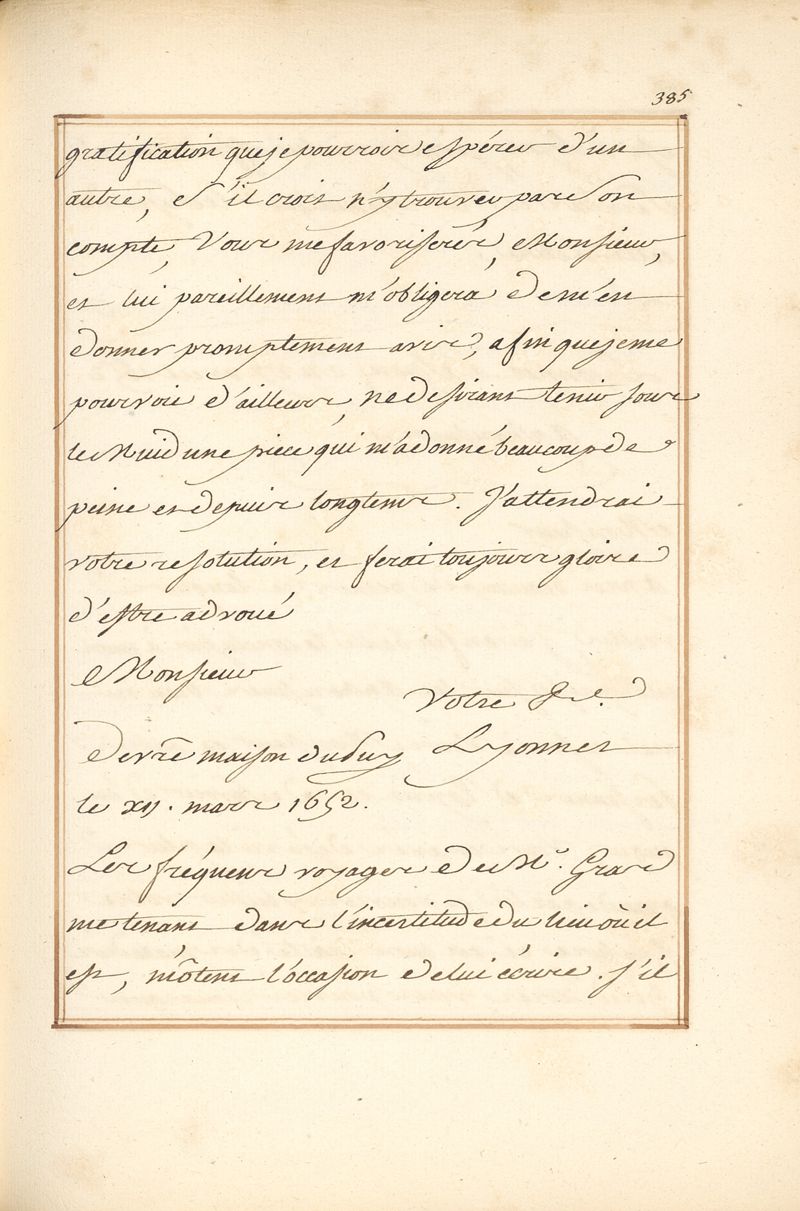 385
gratification que je pourrois espérer d'un
autre, S'il crois n'y trouver pas Son
compte, Vous me favoriserés, Monsieur,
et lui pareillement m'obligera de m'en
donner promptement avis, afin que je me
pourvoie d'ailleurs, ne desirant tenir sous
le Muid une piece qui m'a donné beaucoup de
peine et depuis longtems. J'attendrai
votre resolution, et ferai toujours gloire
d'estre advoué
Monsieur
Votre &c.
De vr̃e maison du Puy Lyonnet
le xij. mars 1652.
Les fréquens voyages de Mr. Gras
me tenans dans l'incertitude du lieu où il
est, m'ôtent l'occasion de lui écrire. s'il